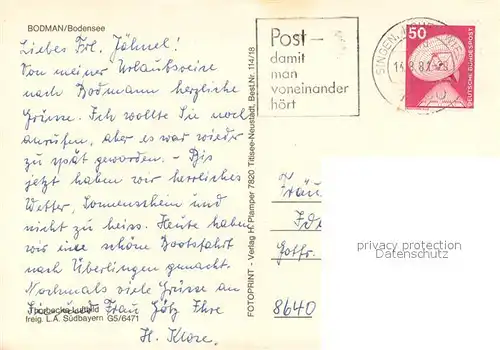 BODMAN/Bodensee
Liebes Frl. Jähnel!
Von meiner Urlaubsreise
nach Bodmann herzliche
Grüsse. Ich wollte Sie noch
anrufen, aber es war wieder
zu spät geworden. - Bis
jetzt haben wir herrliches
Wetter, Sonnenschein und
nicht zu heiss. Heute haben
wir eine schöne Bootsfahrt
nach Überlingen gemacht.
Nochmals viele Grüsse an
Sie und Frau Götz Ihre
H. Klose.
Thorbecke-Luftbild
freig. L.A. Südbayern GS/6471
FOTOPRINT - Verlag H. Plamper 7820 Titisee-Neustadt, Best.Nr. 114/18
Post -
damit
man
voneinander
hört
SINGEN
50
DEUTSCHE BUNDESPOST
Fräu
Ida
Gottfr.
8640
privacy protection
Datenschutz